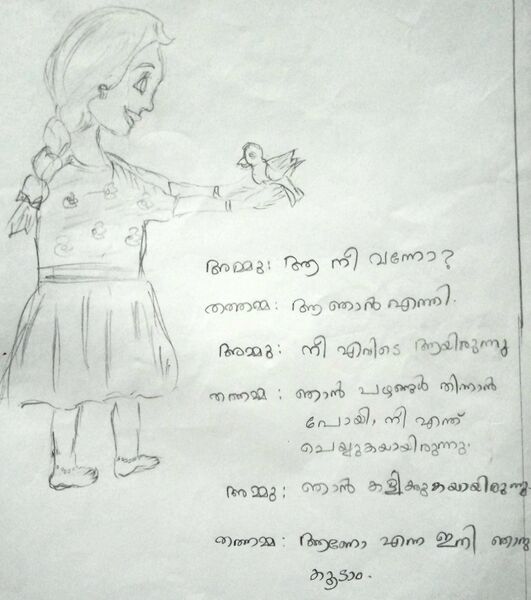 അമ്മു: ആ നീ വന്നോ?
തത്തമ്മ: ആ ഞാൻ എത്തി.
അമ്മു: നീ എവിടെ ആയിരുന്നു
തത്തമ്മ: ഞാൻ പഴങ്ങൾ തിന്നാൻ
പോയി, നീ എന്ത്
ചെയ്യുകയായിരുന്നു.
അമ്മു: ഞാൻ കളിക്കുകയായിരുന്നു.
തത്തമ്മ: ആണോ എന്ന ഇനി ഞാനു
കൂടാം.